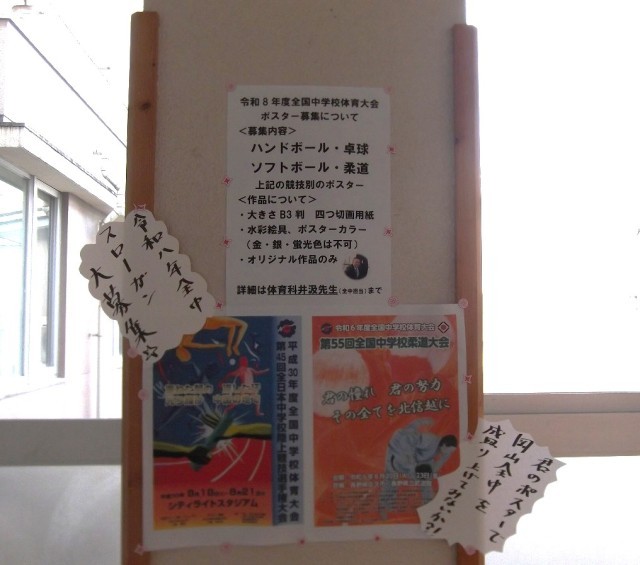 令和8年度全国中学校体育大会
ポスター募集について
<募集内容>
ハンドボール・卓球
ソフトボール・柔道
上記の競技別のポスター
<作品について>
・大きさB3判 四つ切画用紙
・水彩絵具、ポスターカラー
(金・銀・蛍光色は不可)
・オリジナル作品のみ
詳細は体育科井汲先生(全中担当)まで
令和八年全中
スローガン
大募集☆
平成30年度全国中学校体育大会
第45回全日本中学校陸上競技選手権大会
8月18日 8月21日
シティライトスタジアム
令和6年度全国中学校体育大会
第55回全国中学校柔道大会
君の憧れ 君の努力
その全てを北信越に
君のポスターで
岡山全中を
盛り上げてみないか?!